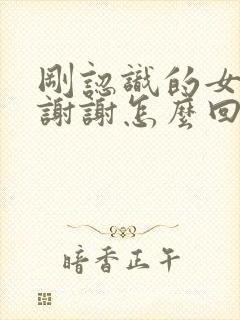 剛認識的女
謝謝怎麼回
暗香正午